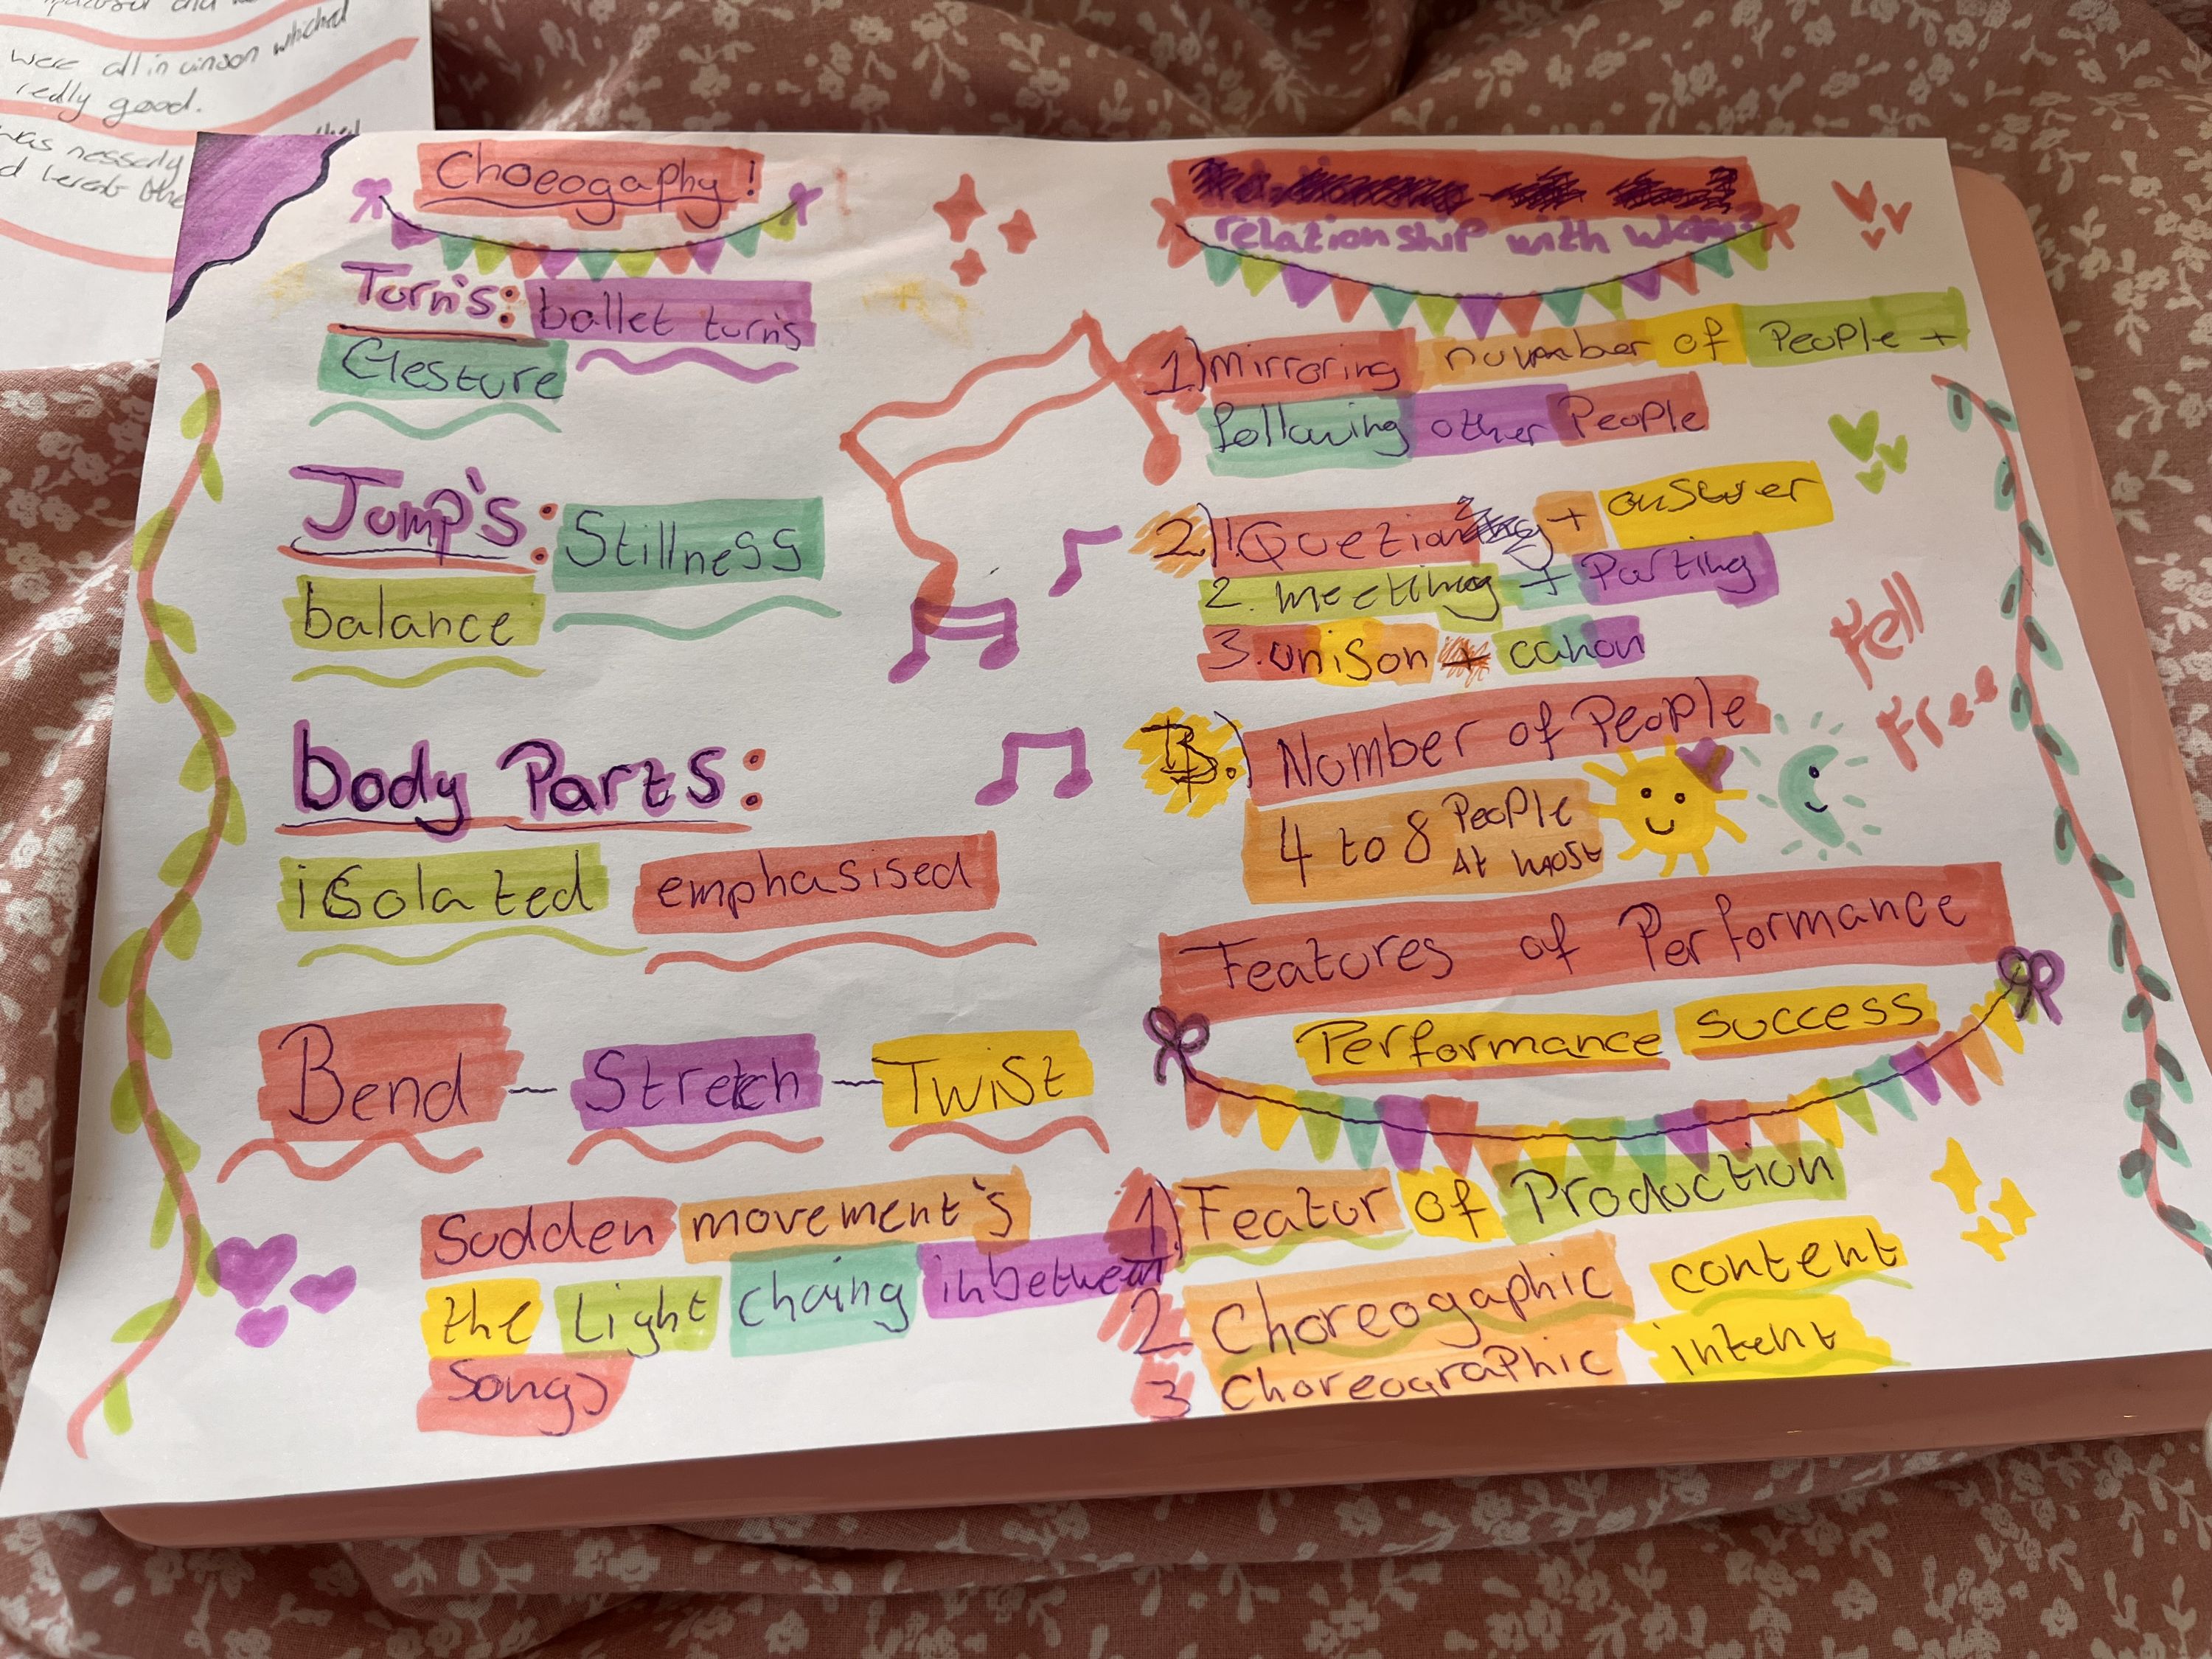 were all in uinson whichal
redly good.
was nesserly
Choeogaphy!
Turn's: ballet turn's
Gesture
Jump's: Stillness
balance
body Parts:
isolated emphasised
Bend - Stretch - Twist
Sudden movement's
the Light chaing inbetween
Songs
relationship with whom?
1.) Mirroring number of People +
following other People
2.) 1. Quezion + answer
2. meeting + Parting
3. unison + cahon
Fell
Free
3.) Number of People
4 to 8 People
At most
Features of Performance
Performance success
1.) Featur of Production
2 Choreogaphic content
3 Choreographic intent